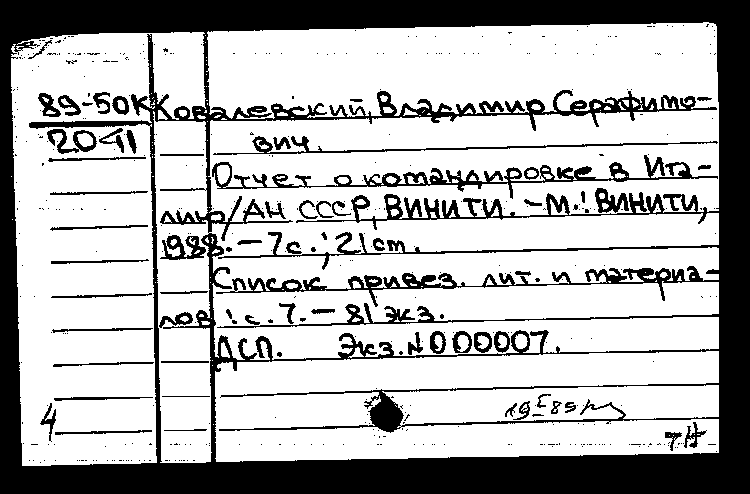 89-50К Ковалевский, Владимир Серафимо-
20411 вич.
Отчет о командировке в Ита-
лию/АН СССР, ВИНИТИ. - М.: ВИНИТИ,
1988. - 7 с.; 21 см.
Список привез. лит. и материа-
лов: с. 7. - 81 экз.
ДСП. Экз. N 000007.
4